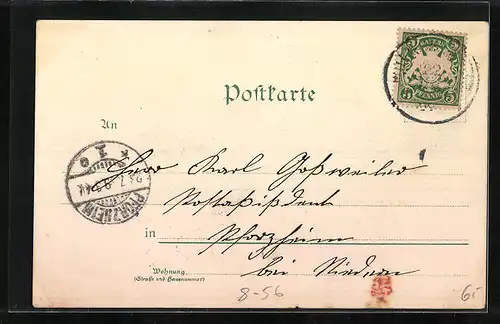 BAYERN
5 5
PFENNIG
Postkarte
An
Herr Karl Goßweiler
Postassistent
in Pforzheim
bei Niedern
Wohnung
(Straße und Hausnummer)
PFORZHEIM
1
8-56
6.-